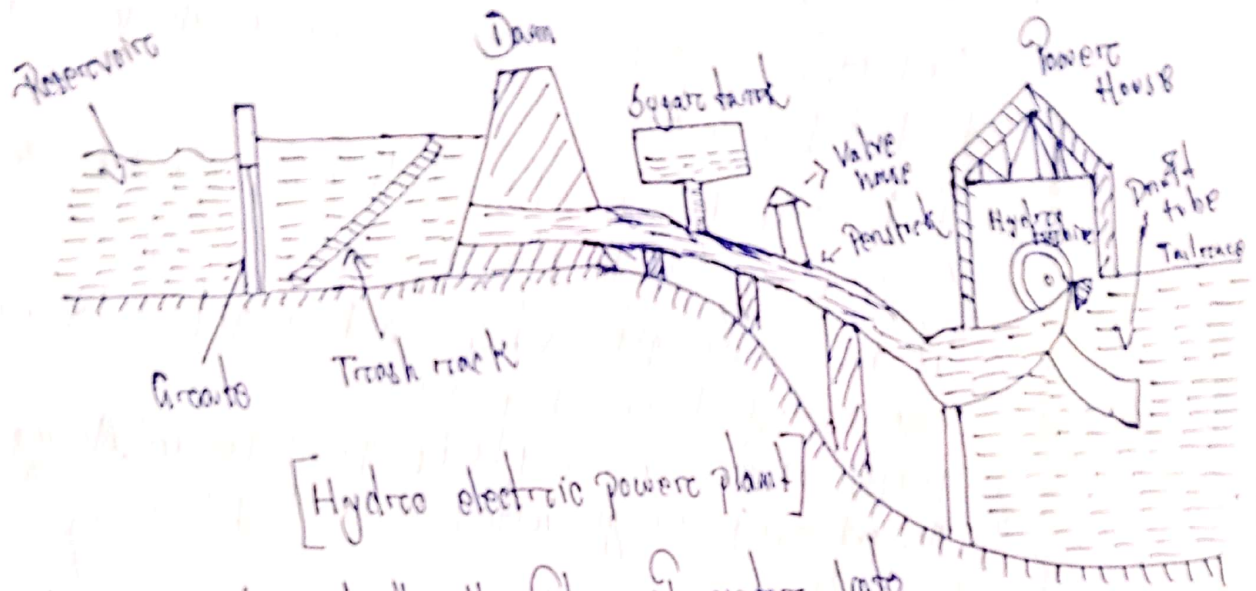 Reservoir
Dam
Sygar tank
Power
House
Valve
house
Penstock
Hydro
turbine
Draft
tube
Tailrace
Grate
Trash rack
[Hydro electric power plant]